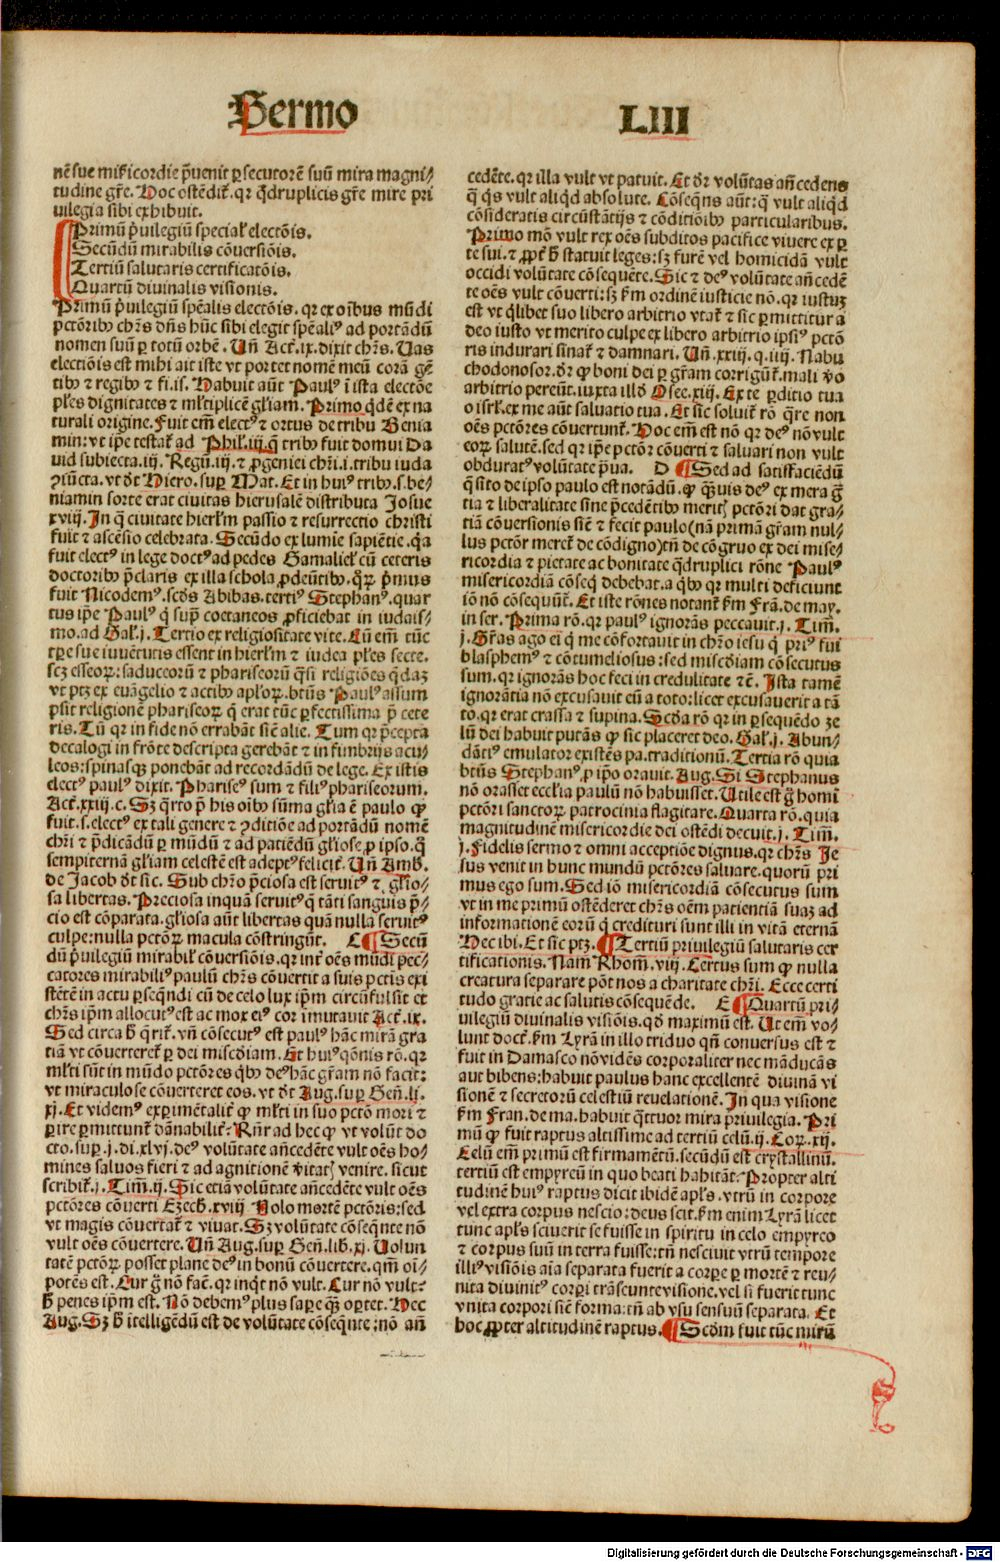 Sermo LIII
nē sue mīḱicordie p̄uenit ꝑsecutorē suū mira magni⸗
tudine gr̄e. Hoc ostēdiť. qꝛ q̄druplicis gr̄e mire pri
uilegia sibi exhibuit.
Primū p̄uilegiū speciaľ electōis.
Secūdū mirabilis cōuersiōis.
Tertiū salutaris certificatōis.
Quartū diuinalis visionis.
Primū p̄uilegiū spēalis electōis. qꝛ ex oībus mūdi
pctōribꝰ chr̄s dn̄s hūc sibi elegit spēaliꝰ ad portādū
nomen suū ꝑ totū orbē. Vn̄ Act̄. ix. dixit chr̄s. Uas
electiōis est mihi ait iste vt portet nomē meū corā gē
tibꝰ ⁊ regibꝰ ⁊ fi. is. Habuit aūt Paulꝰ ī ista electōe
pl̄es dignitates ⁊ ml̄tiplicē gl̄iam. Primo q̄dē ex na
turali origine. Fuit em̄ electꝰ ⁊ ortus de tribu Benia
min: vt ip̄e testať ad Phil̄. iij. q̄ tribꝰ fuit domui Da
uid subiecta. iij. Regū. iij. ⁊ ꝓgeniei chr̄i. i. tribu iuda
ꝯiūcta. vt dr̄ Hiero. suꝑ Mat. Et in huiꝰ tribꝰ. s. be⸗
niamin sorte erat ciuitas hierusalē distributa Josue
xviij. In q̄ ciuitate hierl̄m passio ⁊ resurrectio christi
fuit ⁊ ascēsio celebrata. Secūdo ex lumīe sapiētie. q̄a
fuit electꝰ in lege doctꝰ ad pedes Gamalieľ cū ceteris
doctoribꝰ p̄claris ex illa schola ꝓdeūtibꝰ. qꝝ p̄mus
fuit Nicodemꝰ. scd̄s Abibas. tertiꝰ Stephanꝰ. quar
tus ip̄e Paulꝰ q̄ sup̄ coetaneos ꝓficiebat in iudais⸗
mo. ad Gal̄. j. Tertio ex religiositate vite. Cū em̄ tūc
tꝑe sue iuuētutis essent in hierl̄m ⁊ iudea pl̄es secte.
scꝫ esseoꝝ: saduceorū ⁊ phariseorū q̄si religiōes q̄dā
vt ptꝫ ex euāgelio ⁊ actibꝰ apl̄oꝝ. btūs Paulꝰ assum
psit religionē phariseoꝝ q̄ erat tūc ꝑfectissima p̄ cete
ris. Tū qꝛ in fide nō errabāt siē alie. Tum qꝛ p̄cepta
decalogi in frōte descripta gerebāt ⁊ in fimbrijs acu⸗
leos: spinasqꝫ ponebāt ad recordādū de lege. Ex istis
electꝰ paulꝰ dixit. Phariseꝰ sum ⁊ filiꝰ phariseorum.
Act̄. xxiij. c. Sꝫ q̄rto p̄ his oībꝰ sūma gl̄ia ē paulo ꝙ
fuit. s. electꝰ ex tali genere ⁊ ꝯditiōe ad portādū nomē
chr̄i ⁊ p̄dicādū ꝑ mūdū ⁊ ad patiēdū gl̄iose ꝓ ipso. q̄
sempiternā gl̄iam celestē est adeptꝰ feliciť. Vn̄ Amb̄.
de Jacob dr̄ sic. Sub chr̄o p̄ciosa est seruitꝰ ⁊ gl̄io⸗
sa libertas. Preciosa inquā seruitꝰ q̄ tāti sanguis p̄⸗
cio est cōparata. gl̄iosa aūt libertas quā nulla seruitꝰ
culpe: nulla pctōꝝ macula cōstringūt. C ¶ Secū
dū p̄uilegiū mirabiľ cōuersiōis. qꝛ int̄ oēs mūdi pec⸗
catores mirabiliꝰ paulū chr̄s cōuertit a suis pctis exi
stētē in actu ꝑseq̄ndi cū de celo lux ip̄m circūfulsit et
chr̄s ip̄m allocutꝰ est ac mox eiꝰ cor īmutauit Act̄. ix.
Sed circa h̄ q̄riť. vn̄ cōsecutꝰ est paulꝰ hāc mirā gra
tiā vt cōuerteret̄ ꝑ dei misc̄diam. Et huiꝰ qōnis rō. qꝛ
ml̄ti sūt in mūdo pctōres q̄bꝰ deꝰ hāc gr̄am nō facit:
vt miraculose cōuerteret eos. vt dr̄ Aug. suꝑ Gen̄. li.
xj. Et videmꝰ exꝑimētaliť ꝙ ml̄ti in suo pctō mori ⁊
ꝑire ꝑmittunť dānabiliť. Rn̄r ad hec ꝙ vt volūt do
cto. suꝑ. j. di. xlvj. deꝰ volūtate an̄cedēte vult oēs ho⸗
mines saluos fieri ⁊ ad agnitionē v̄itatꝭ venire. sicut
scribiť. j. Tim̄. ij. Sic etiā volūtate an̄cedēte vult oēs
pctōres cōuerti Ezech̄. xviij Nolo mortē pctōris: sed
vt magis cōuertať ⁊ viuat. Sꝫ volūtate cōseq̄nte nō
vult oēs cōuertere. Vn̄ Aug. suꝑ Gen̄. lib. xj. Volun
tatē pctōꝝ posset plane deꝰ in bonū cōuertere. qm̄ oi⸗
potēs est. Cur g̊ nō faē. qꝛ inq̇t nō vult. Cur nō vult:
h̄ penes ip̄m est. Nō debemꝰ plus saꝑe q̄ꝫ oꝑtet. Hec
Aug. Sꝫ h̄ ītelligēdū est de volūtate cōseq̄nte: nō an̄
cedēte. qꝛ illa vult vt patuit. Et dr̄ volūtas an̄cedens
q̄ q̇s vult aliq̇d absolute. Cōseq̄ns aūt: q̄ vult aliq̇d
cōsideratis circūstātijs ⁊ cōditiōibꝰ particularibus.
Primo mō vult rex oēs subditos pacifice viuere ex ꝑ
te sui. ⁊ ꝓpt̄ h̄ statuit leges: sꝫ furē vel homicidā vult
occidi volūtate cōsequēte. Sic ⁊ deꝰ volūtate an̄cedē
te oēs vult cōuerti: sꝫ km̄ ordinē iusticie nō. qꝛ iustuꝫ
est vt q̇libet suo libero arbitrio vtať ⁊ sic ꝑmittitur a
deo iusto vt merito culpe ex libero arbitrio ipsiꝰ pctō
ris indurari sinať ⁊ damnari. Vn̄. xxiij. q. iiij. Nabu
chodonosor. dr̄ ꝙ boni dei ꝑ gr̄am corrigūť. mali v̄o
arbitrio pereūt. iuxta illd̄ Osee. xiij. Ex te ꝑditio tua
o isrl̄. ex me aūt saluatio tua. Et sic soluiť rō q̄re non
oēs pctōres cōuertunť. Hoc em̄ est nō qꝛ deꝰ nō vult
eoꝝ salutē. sed qꝛ ip̄e pctōr cōuerti ⁊ saluari non vult
obduratꝰ volūtate ꝓ̄ua. D ¶ Sed ad satisfaciēdū
q̄sito de ipso paulo est notādū. ꝙ q̄ꝫuis deꝰ ex mera gr̄
tia ⁊ liberalitate sine p̄cedētibꝰ meritꝭ pctōri dat gra⸗
tiā cōuersionis siē ⁊ fecit paulo (nā primā gr̄am nul⸗
lus pctōr mereť de cōdigno) tn̄ de cōgruo ex dei mise⸗
ricordia ⁊ pietate ac bonitate q̄druplici rōne Paulꝰ
misericordiā cōseq̇ debebat. a q̇bꝰ qꝛ multi deficiunt
iō nō cōsequūť. Et iste rōnes notanť km̄ Frā. de may.
in ser. Prima rō. qꝛ paulꝰ ignorās peccauit. j. Tim̄.
j. Gr̄as ago ei q̇ me cōfortauit in chr̄o iesu q̇ priꝰ fui
blasphemꝰ ⁊ cōtumeliosus: sed misc̄diam cōsecutus
sum. qꝛ ignorās hoc feci in credulitate ⁊ē. Ista tamē
ignorātia nō excusauit eū a toto: licet excusauerit a tā
to. qꝛ erat crassa ⁊ supina. Scd̄a rō qꝛ in ꝑsequēdo ze
lū dei habuit putās ꝙ sic placeret deo. Gal̄. j. Abun⸗
dātiꝰ emulator existēs pa. traditionū. Tertia rō quia
btūs Stephanꝰ ꝓ ip̄o orauit. Aug. Si Stephanus
nō orasset eccl̄ia paulū nō habuisset. Utile est g̊ homī
pctōri sanctoꝝ patrocinia flagitare. Quarta rō. quia
magnitudinē misericordie dei ostēdi decuit. j. Tim̄.
j. Fidelis sermo ⁊ omni acceptiōe dignus. qꝛ chr̄s Je
sus venit in hunc mundū pctōres saluare. quorū pri
mus ego sum. Sed iō misericordiā cōsecutus sum
vt in me primū ostēderet chr̄s oēm patientiā suaꝫ ad
informationē eorū q̇ credituri sunt illi in vitā eternā
Hec ibi. Et sic ptꝫ. ¶ Tertiū priuilegiū salutaris cer
tificationis. Nam Rhom̄. viij. Certus sum ꝙ nulla
creatura separare pōt nos a charitate chr̄i. Ecce certi
tudo gratie ac salutis cōsequēde. E ¶ Quartū pri⸗
uilegiū diuinalis visiōis. qd̄ maximū est. Ut em̄ vo⸗
lunt doct̄. km̄ Lyrā in illo triduo qn̄ conuersus est ⁊
fuit in Damasco nō vidēs corporaliter nec māducās
aut bibens: habuit paulus hanc excellentē diuinā vi
sionē ⁊ secretorū celestiū reuelationē. In qua visione
km̄ Fran. de ma. habuit q̄ttuor mira priuilegia. Pri
mū ꝙ fuit raptus altissime ad tertiū celū. ij. Coꝝ. xij.
Celū em̄ primū est firmamētū. secūdū est crystallinū.
tertiū est empyreū in quo beati habitāt. Propter alti
tudinē huiꝰ raptus dicit ibidē apl̄s. vtrū in corpore
vel extra corpus nescio: deus scit. km̄ enim Lyrā licet
tunc apl̄s sciuerit se fuisse in spiritu in celo empyreo
⁊ corpus suū in terra fuisse: tn̄ nesciuit vtrū tempore
illiꝰ visiōis aīa separata fuerit a corꝑe ꝑ mortē ⁊ reu⸗
nita diuinitꝰ corꝑi trāseunte visione. vel si fuerit tunc
vnita corpori siē forma: tn̄ ab vsu sensuū separata. Et
hoc ꝓpter altitudinē raptus. ¶ Scd̄m fuit tūc mirū
Digitalisierung gefördert durch die Deutsche Forschungsgemeinschaft - DFG